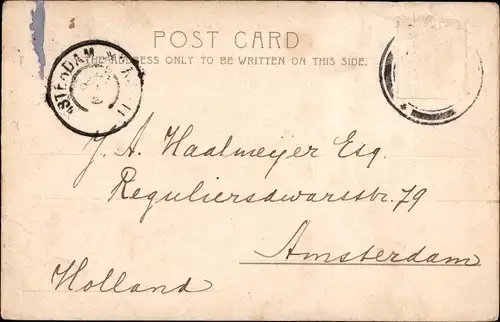 POST CARD
THE ADDRESS ONLY TO BE WRITTEN ON THIS SIDE.
AMSTERDAM
J. A. Haalmeijer Esq.
Reguliersdwarsstr. 79
Amsterdam
Holland